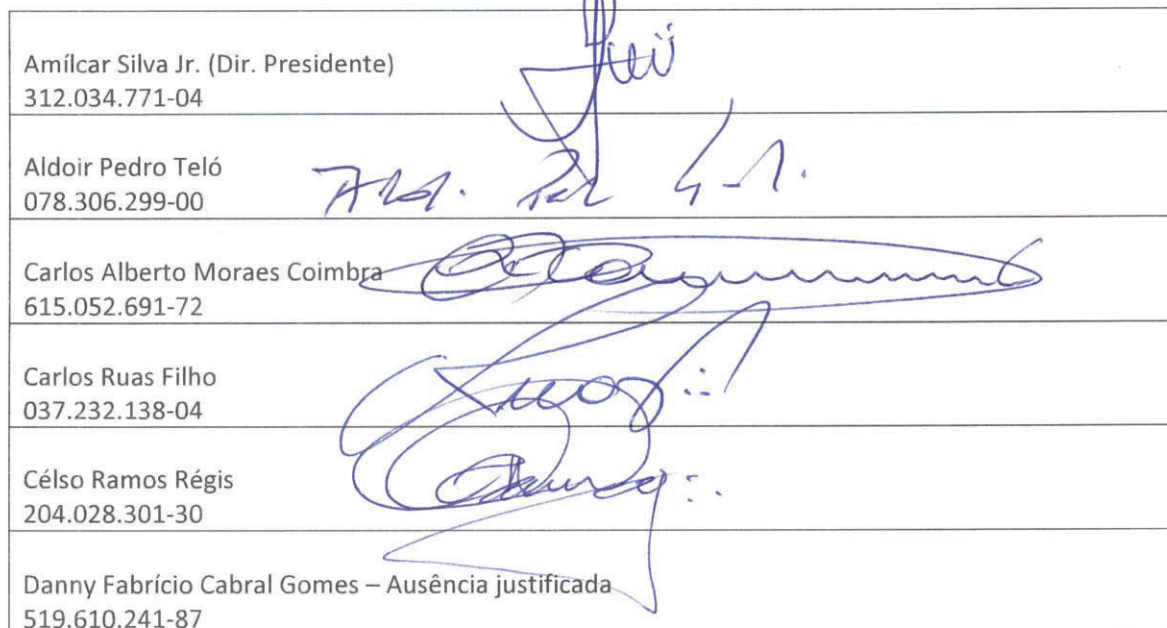 Amílcar Silva Jr. (Dir. Presidente)
312.034.771-04
Aldoir Pedro Teló
078.306.299-00
Carlos Alberto Moraes Coimbra
615.052.691-72
Carlos Ruas Filho
037.232.138-04
Célso Ramos Régis
204.028.301-30
Danny Fabrício Cabral Gomes – Ausência justificada
519.610.241-87